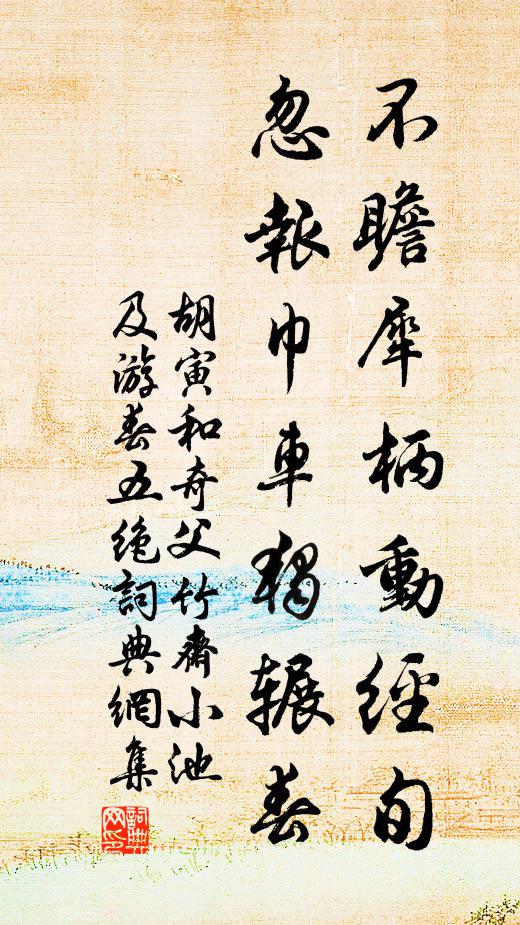 不瞻犀柄動經旬
忽報巾車獨辗春
胡寅和奇父竹齋小池
及游春五絶詞典網集
詞典网印